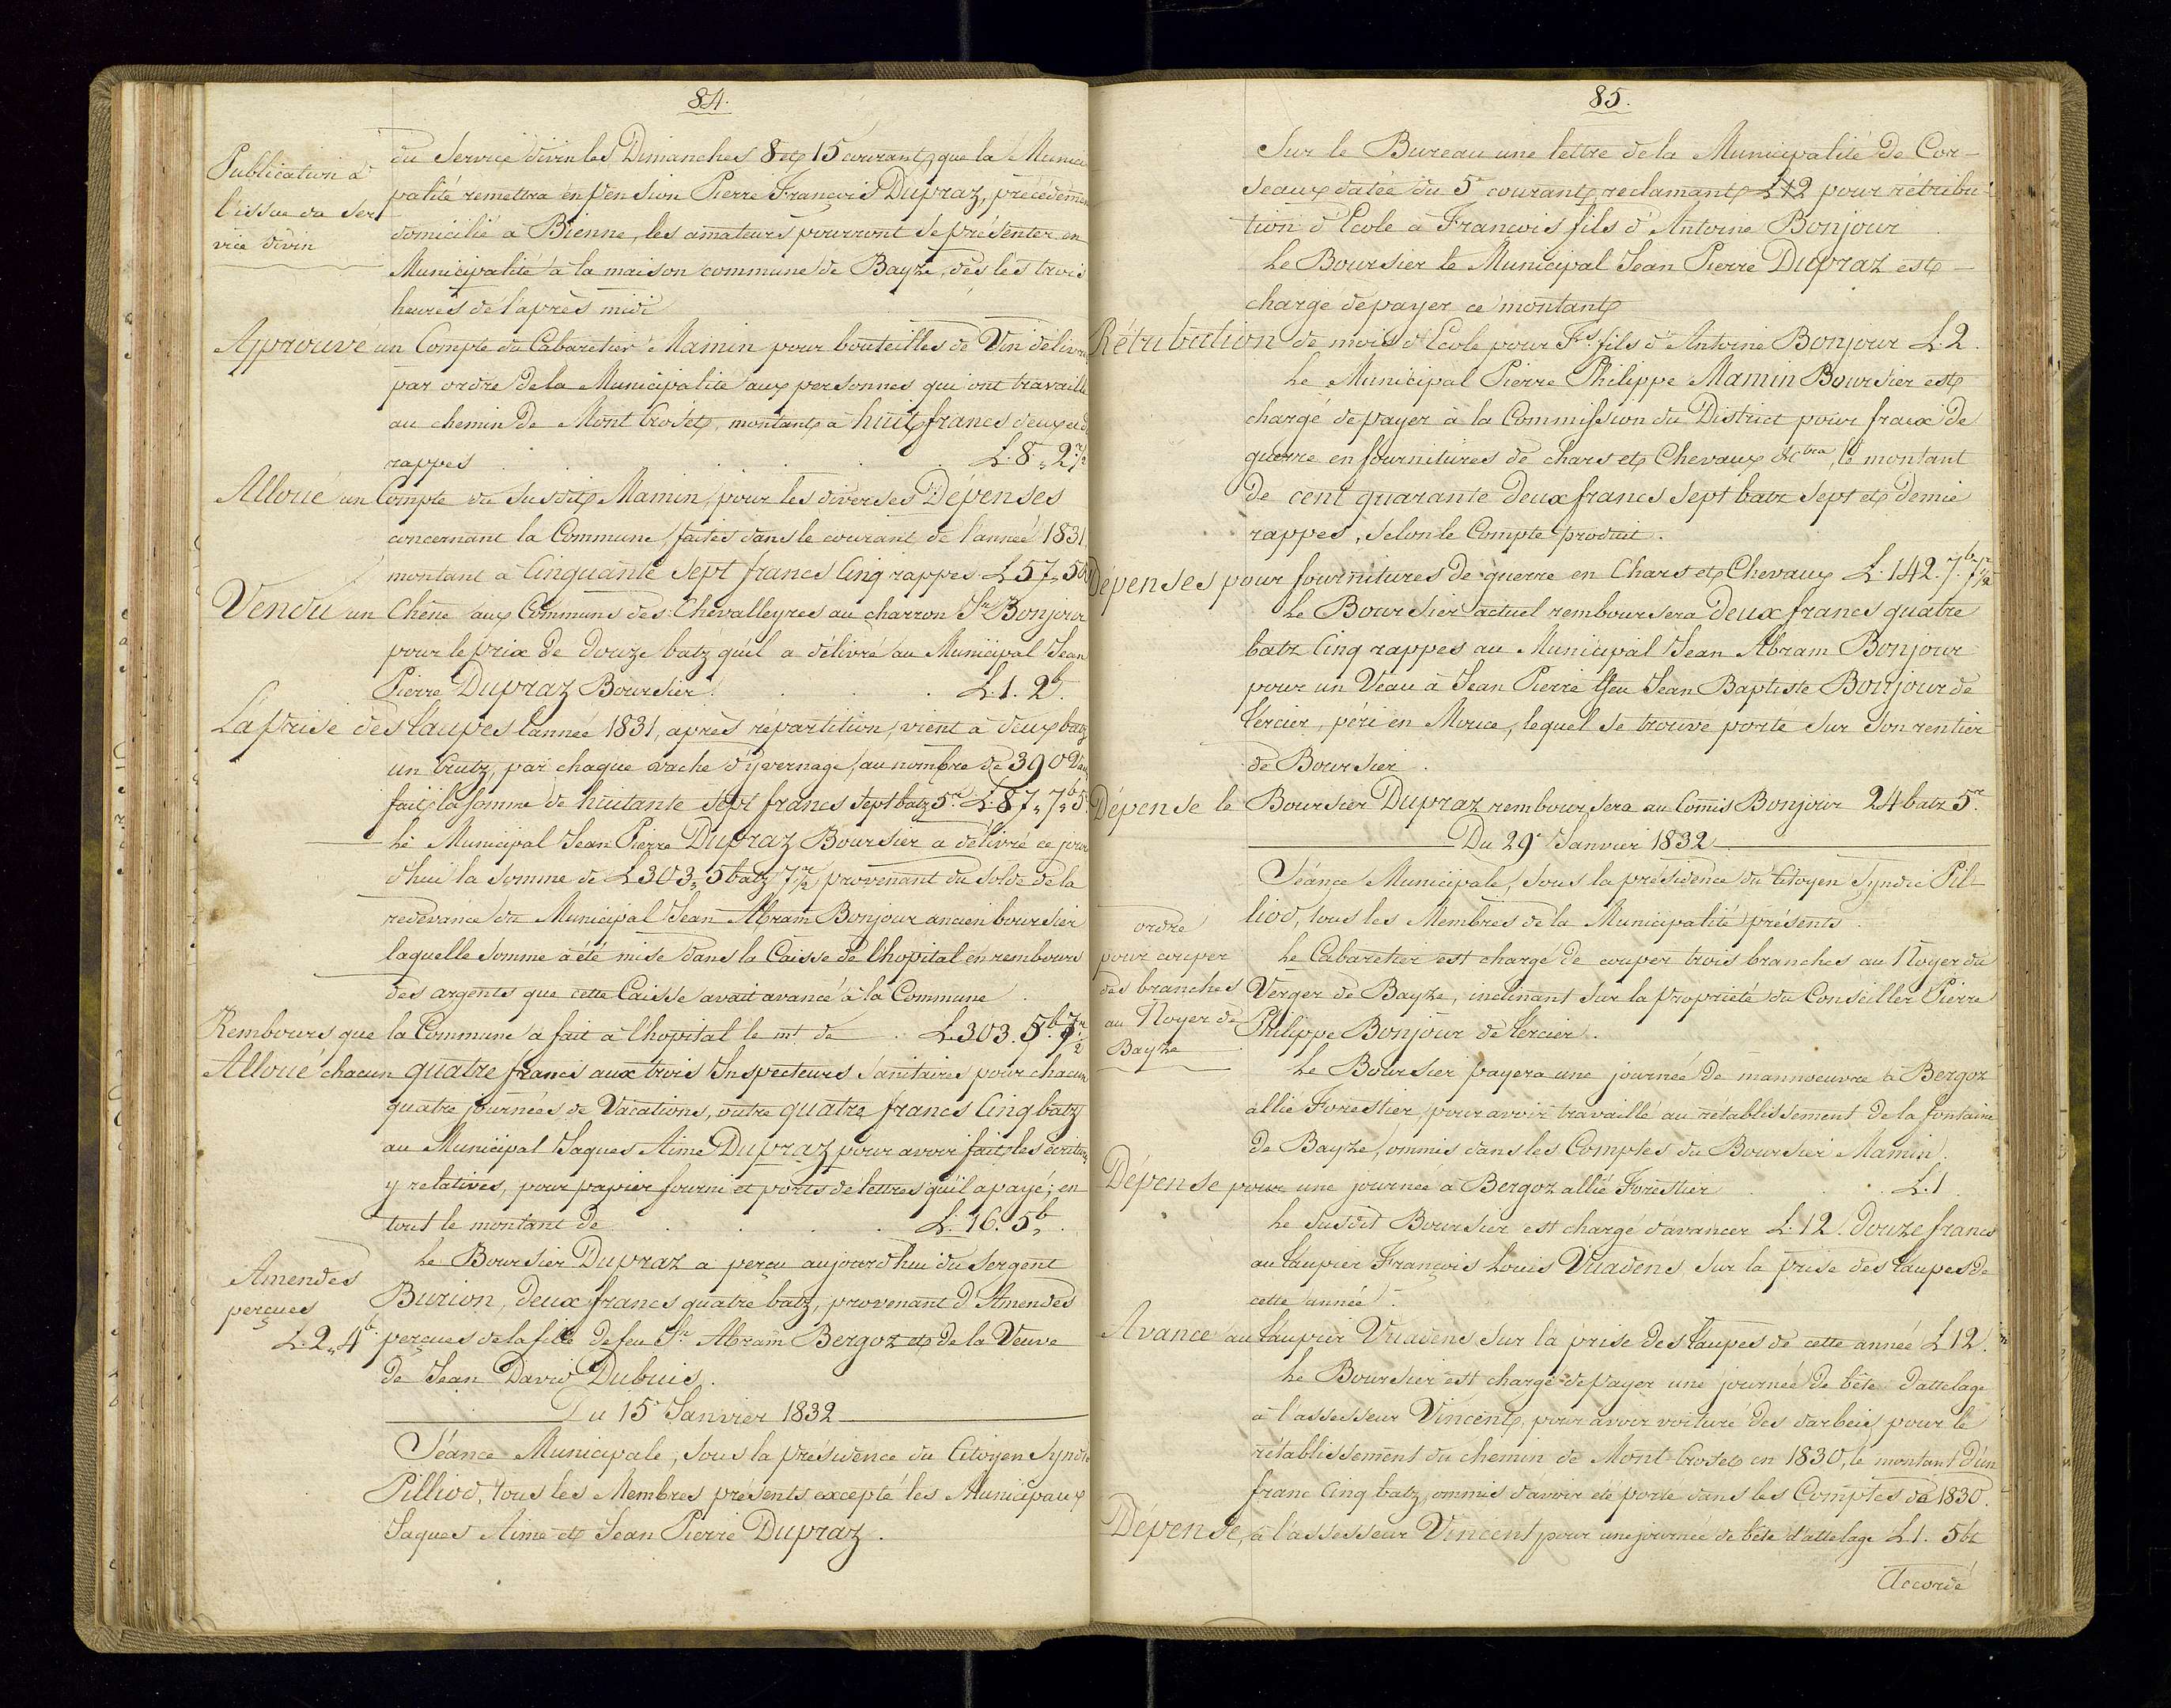 84.
Publication à
l'issue du ser
vice divin
du Service divin les Dimanches 8 et 15 courant, que la Munici
palité remettra en pension Pierre François Dupraz, précédemen
domicilié à Bienne, les amateurs pourront se présenter en
Municipalité à la maison commune de Bayze, dès les trois
heures de l'après midi
Approuvé un Compte du Cabaretier Mamin pour bouteilles de Vin délivré
par ordre de la Municipalité aux personnes qui ont travaillé
au chemin de Mont Crotet, montant à huit francs deux et d
rappes . . . . . L. 8 „ 2 r ½
Alloué un Compte du susdit Mamin, pour les diverses Dépenses
concernant la Commune, faites dans le courant de l'année 1831.
montant à Cinquante sept francs Cinq rappes L 57„ 5
Vendu un Chêne aux Communs des Chevalleyres au charron Fs Bonjour
pour le prix de douze batz qu'il a délivré au Municipal Jean
Pierre Dupraz Boursier . . . L. 1. 2 b.
La prise des taupes l'année 1831, après répartition, vient à deux batz
un Crutz, par chaque vache d'yvernage, au nombre de 390
fait la somme de huitante sept francs sept batz 5 r. L. 87„ 7 b„ 5
Le Municipal Jean Pierre Dupraz Boursier a délivré ce jour
d'hui la somme de L 303„ 5 batz 7 r ½ provenant du solde de la
redevance du Municipal Jean Abram Bonjour ancien boursier
laquelle somme a été mise dans la Caisse de l'hopital en rembours
des argents que cette Caisse avait avancé à la Commune .
Rembours que la Commune a fait à l'hopital le mt. de . L. 303. 5 b. 7 r. ½
Alloué chacun quatre francs aux trois Inspecteurs Sanitaires pour chacun
quatre journées de Vacations, outre quatre francs Cinq batz
au Municipal Jaques Aimé Dupraz pour avoir fait les écritures
y relatives, pour papier fourni et ports de lettres qu'il a payé; en
tout le montant de . . . . L. 16. 5 b.
Amendes
perçues
L. 2„ 4 b.
Le Boursier Dupraz a perçu aujourd'hui du Sergent
Burion, deux francs quatre batz, provenant d'Amendes
perçues de la fille de feu Fs Abram Bergoz et de la Veuve
de Jean David Dubuis.
Du 15e Janvier 1832
Séance Municipale, sous la présidence du Citoyen Syndic
Pilliod, tous les Membres présents excepté les Municipaux
Jaques Aimé et Jean Pierre Dupraz .
85.
Sur le Bureau une lettre de la Municipalité de Cor-
seaux datée du 5e courant, reclamant L 2 pour rétribu-
tion d'Ecole à François fils d'Antoine Bonjour
Le Boursier le Municipal Jean Pierre Dupraz est
chargé de payer ce montant
Rétribution de mois d'Ecole pour Fs. fils d'Antoine Bonjour L. 2.
Le Municipal Pierre Philippe Mamin Boursier est
chargé de payer à la Commission du District pour fraix de
guerre en fournitures de chars et Chevaux &c, le montant
de cent quarante deux francs sept batz sept et demie
rappes, selon le Compte produit.
Dépenses pour fournitures de guerre en Chars et Chevaux L. 142. 7 b. 7 r ½
Le Boursier actuel remboursera deux francs quatre
batz Cinq rappes au Municipal Jean Abram Bonjour
pour un Veau à Jean Pierre feu Jean Baptiste Bonjour de
Tercier, péri en Mouce, lequel se trouve porté sur son rentier
de Boursier .
Dépense le Boursier Dupraz remboursera au Comis Bonjour 24 batz 5 r.
Du 29e Janvier 1832
Séance Municipale, sous la présidence du Citoyen Syndic Pil-
liod, tous les Membres de la Municipalité présents .
ordre
pour couper
des branches
au Noyer de
Bayze
Le Cabaretier est chargé de couper trois branches au Noyer du
Verger de Bayze, inclinant sur la propriété du Conseiller Pierre
Philippe Bonjour de Tercier .
Le Boursier payera une journée de manoeuvre à Bergoz
allié Forestier, pour avoir travaillé au rétablissement de la fontaine
de Bayze, ommis dans les Comptes du Boursier Mamin.
Dépense pour une journée à Bergoz allié Forestier . . L. 1
Le susdit Boursier est chargé d'avancer L. 12. douze francs
au taupier François Louis Vuadens, sur la prise des taupes de
cette année .
Avance au taupier Vuadens sur la prise des taupes de cette année L 12.
Le Boursier est chargé de payer une journée de bête d'attelage
à l'assesseur Vincent, pour avoir voituré des darbeis pour le
rétablissement du chemin de Mont-Crotet en 1830, le montant d'un
franc Cinq batz, ommis d'avoir été porté dans les Comptes de 1830.
Dépense, à l'assesseur Vincent pour une journée de bête d'attelage L. 1. 5 bz
Accordé